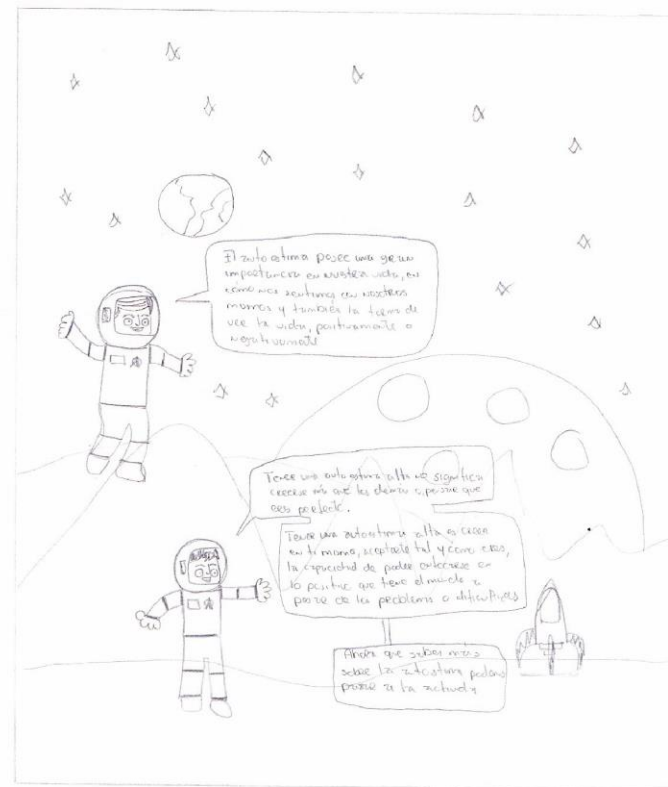 El autoestima posee una gran
importancia en nuestra vida, en
cómo nos sentimos con nosotros
mismos y también la forma de
ver la vida, positivamente o
negativamente
Tener una autoestima alta no significa
creerse más que los demás o pensar que
eres perfecto.
Tener una autoestima alta es creer
en ti mismo, aceptarte tal y como eres,
la capacidad de poder
lo positivo que tiene el mundo a
pesar de los problemas o dificultades
Ahora que sabes más
sobre la autoestima podemos
pasar a la